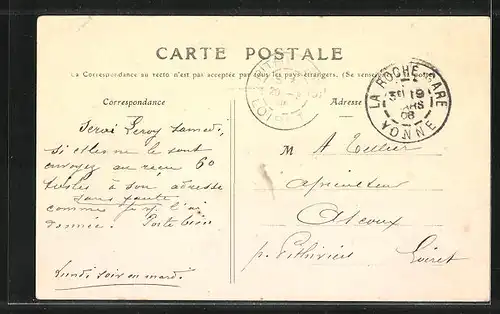 CARTE POSTALE
La Correspondance au recto n'est pas acceptée par tous les pays étrangers. (Se renseigner à la Poste)
Correspondance
Adresse
LA ROCHE GARE
19
08
YONNE
LOIRET
Leroy samedi,
si elles ne le sont
envoyez au reçu 60
à son adresse
sans faute
comme je l'ai
donnée. Porte bien
Lundi soir en mardi
M A Tellier
apiculteur
Ascoux
p. Pithiviers Loiret